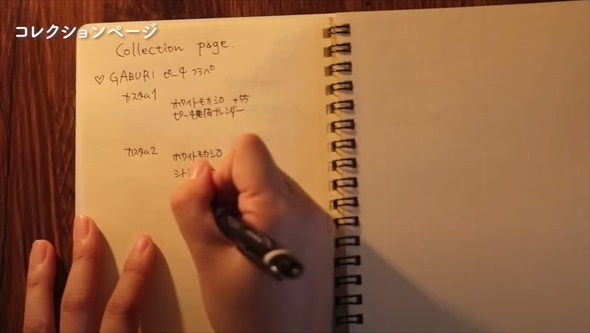 コレクションページ
Collection page.
♡ GABURI ピーチ フラペ
カスタム1
ホワイトモカシロ +55
ピーチ果肉ブレンダー
カスタム2
ホワイトモカシロ